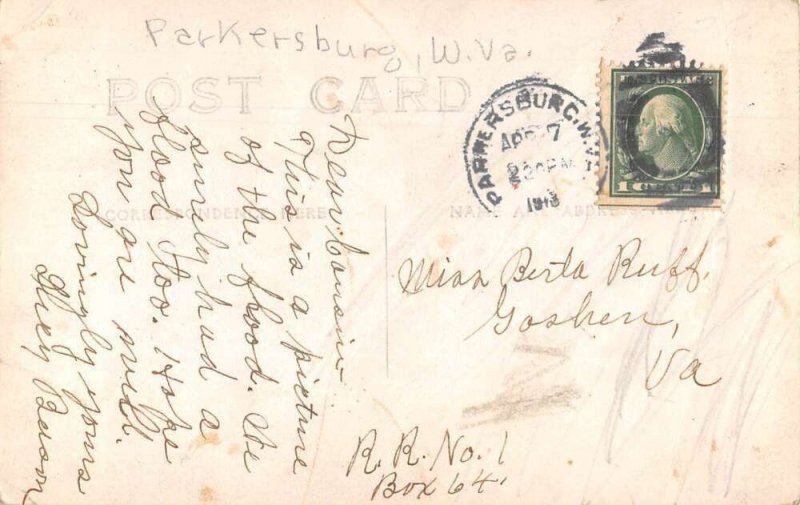 Parkersburg, W.Va.
POST CARD
PARKERSBURG, W.VA.
APR 7
230PM
1913
U.S. POSTAGE
1 CENT 1
CORRESPONDENCE HERE
NAME AND ADDRESS HERE
Dear Cousin
This is a picture
of the flood. We
surely had a
flood too. Hope
you are well.
Lovingly yours
Miss Berta Ruff.
Goshen,
Va
R.R. No. 1
Box 64